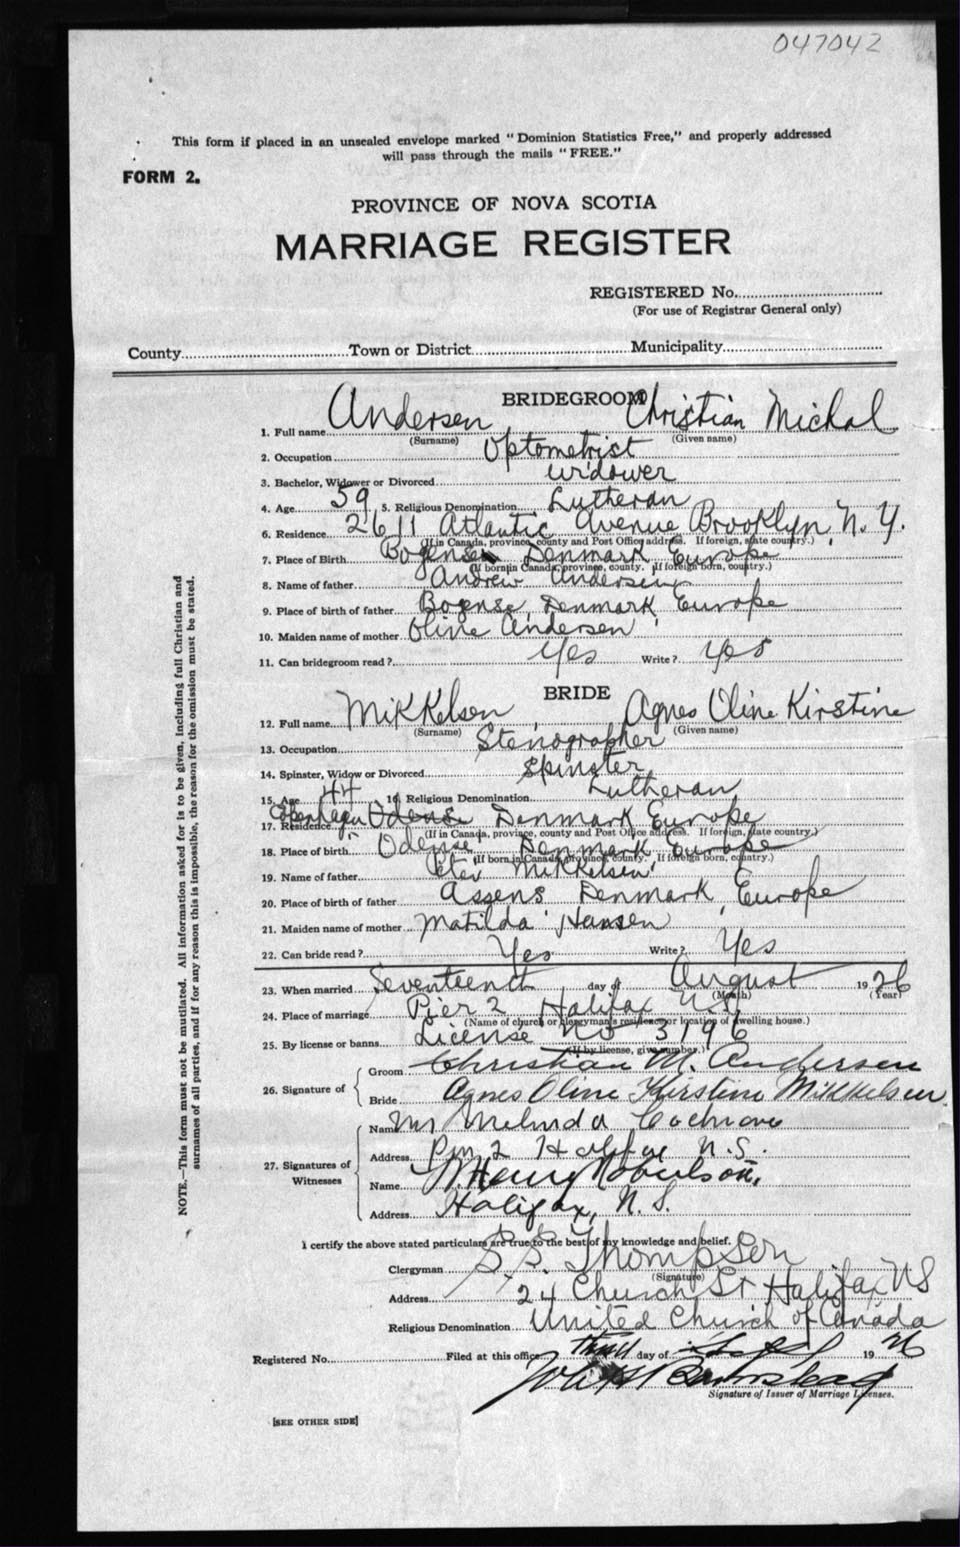 047042
This form if placed in an unsealed envelope marked "Dominion Statistics Free," and properly addressed
will pass through the mails "FREE."
FORM 2.
PROVINCE OF NOVA SCOTIA
MARRIAGE REGISTER
REGISTERED No.
(For use of Registrar General only)
County Town or District Municipality
BRIDEGROOM
1. Full name Andersen Christian Michal
(Surname) (Given name)
2. Occupation Optometrist
3. Bachelor, Widower or Divorced widower
4. Age 59 5. Religious Denomination Lutheran
6. Residence 2611 Atlantic Avenue Brooklyn, N.Y.
(If in Canada, province, county and Post Office address. If foreign, state country.)
7. Place of Birth Bogense Denmark Europe
(If born in Canada, province, county. If foreign born, country.)
8. Name of father Andrew Andersen
9. Place of birth of father Bogense, Denmark, Europe
10. Maiden name of mother Oline Andersen
11. Can bridegroom read? Yes Write? yes
BRIDE
12. Full name Mikkelsen, Agnes Oline Kirstine
(Surname) (Given name)
13. Occupation Stenographer
14. Spinster, Widow or Divorced Spinster
15. Age 44 16. Religious Denomination Lutheran
17. Residence Copenhagen Odense Denmark Europe
(If in Canada, province, county and Post Office address. If foreign, state country.)
18. Place of birth Odense Denmark Europe
(If born in Canada, province, county. If foreign born, country.)
19. Name of father Peter Mikkelsen
20. Place of birth of father Assens, Denmark, Europe
21. Maiden name of mother Matilda Hansen
22. Can bride read? Yes Write? Yes
23. When married Seventeenth day of August 1926
(Month) (Year)
24. Place of marriage Pier 2 Halifax N.S.
(Name of church or clergyman's residence or location of dwelling house.)
25. By license or banns License No 3196
(If by license, give number.)
26. Signature of Groom Christian M. Andersen
Bride Agnes Oline Kirstine Mikkelsen
27. Signatures of Witnesses
Name Melinda Cochrane
Address Pier 2 Halifax N.S.
Name Henry Robertson,
Address Halifax, N.S.
I certify the above stated particulars are true to the best of my knowledge and belief.
Clergyman S. S. Thompson
(Signature)
Address 24 Church St Halifax NS
Religious Denomination United Church of Canada
Registered No. Filed at this office day of 1926
Signature of Issuer of Marriage Licenses.
[SEE OTHER SIDE]
NOTE.—This form must not be mutilated. All information asked for is to be given, including full Christian and
surnames of all parties, and if for any reason this is impossible, the reason for the omission must be stated.